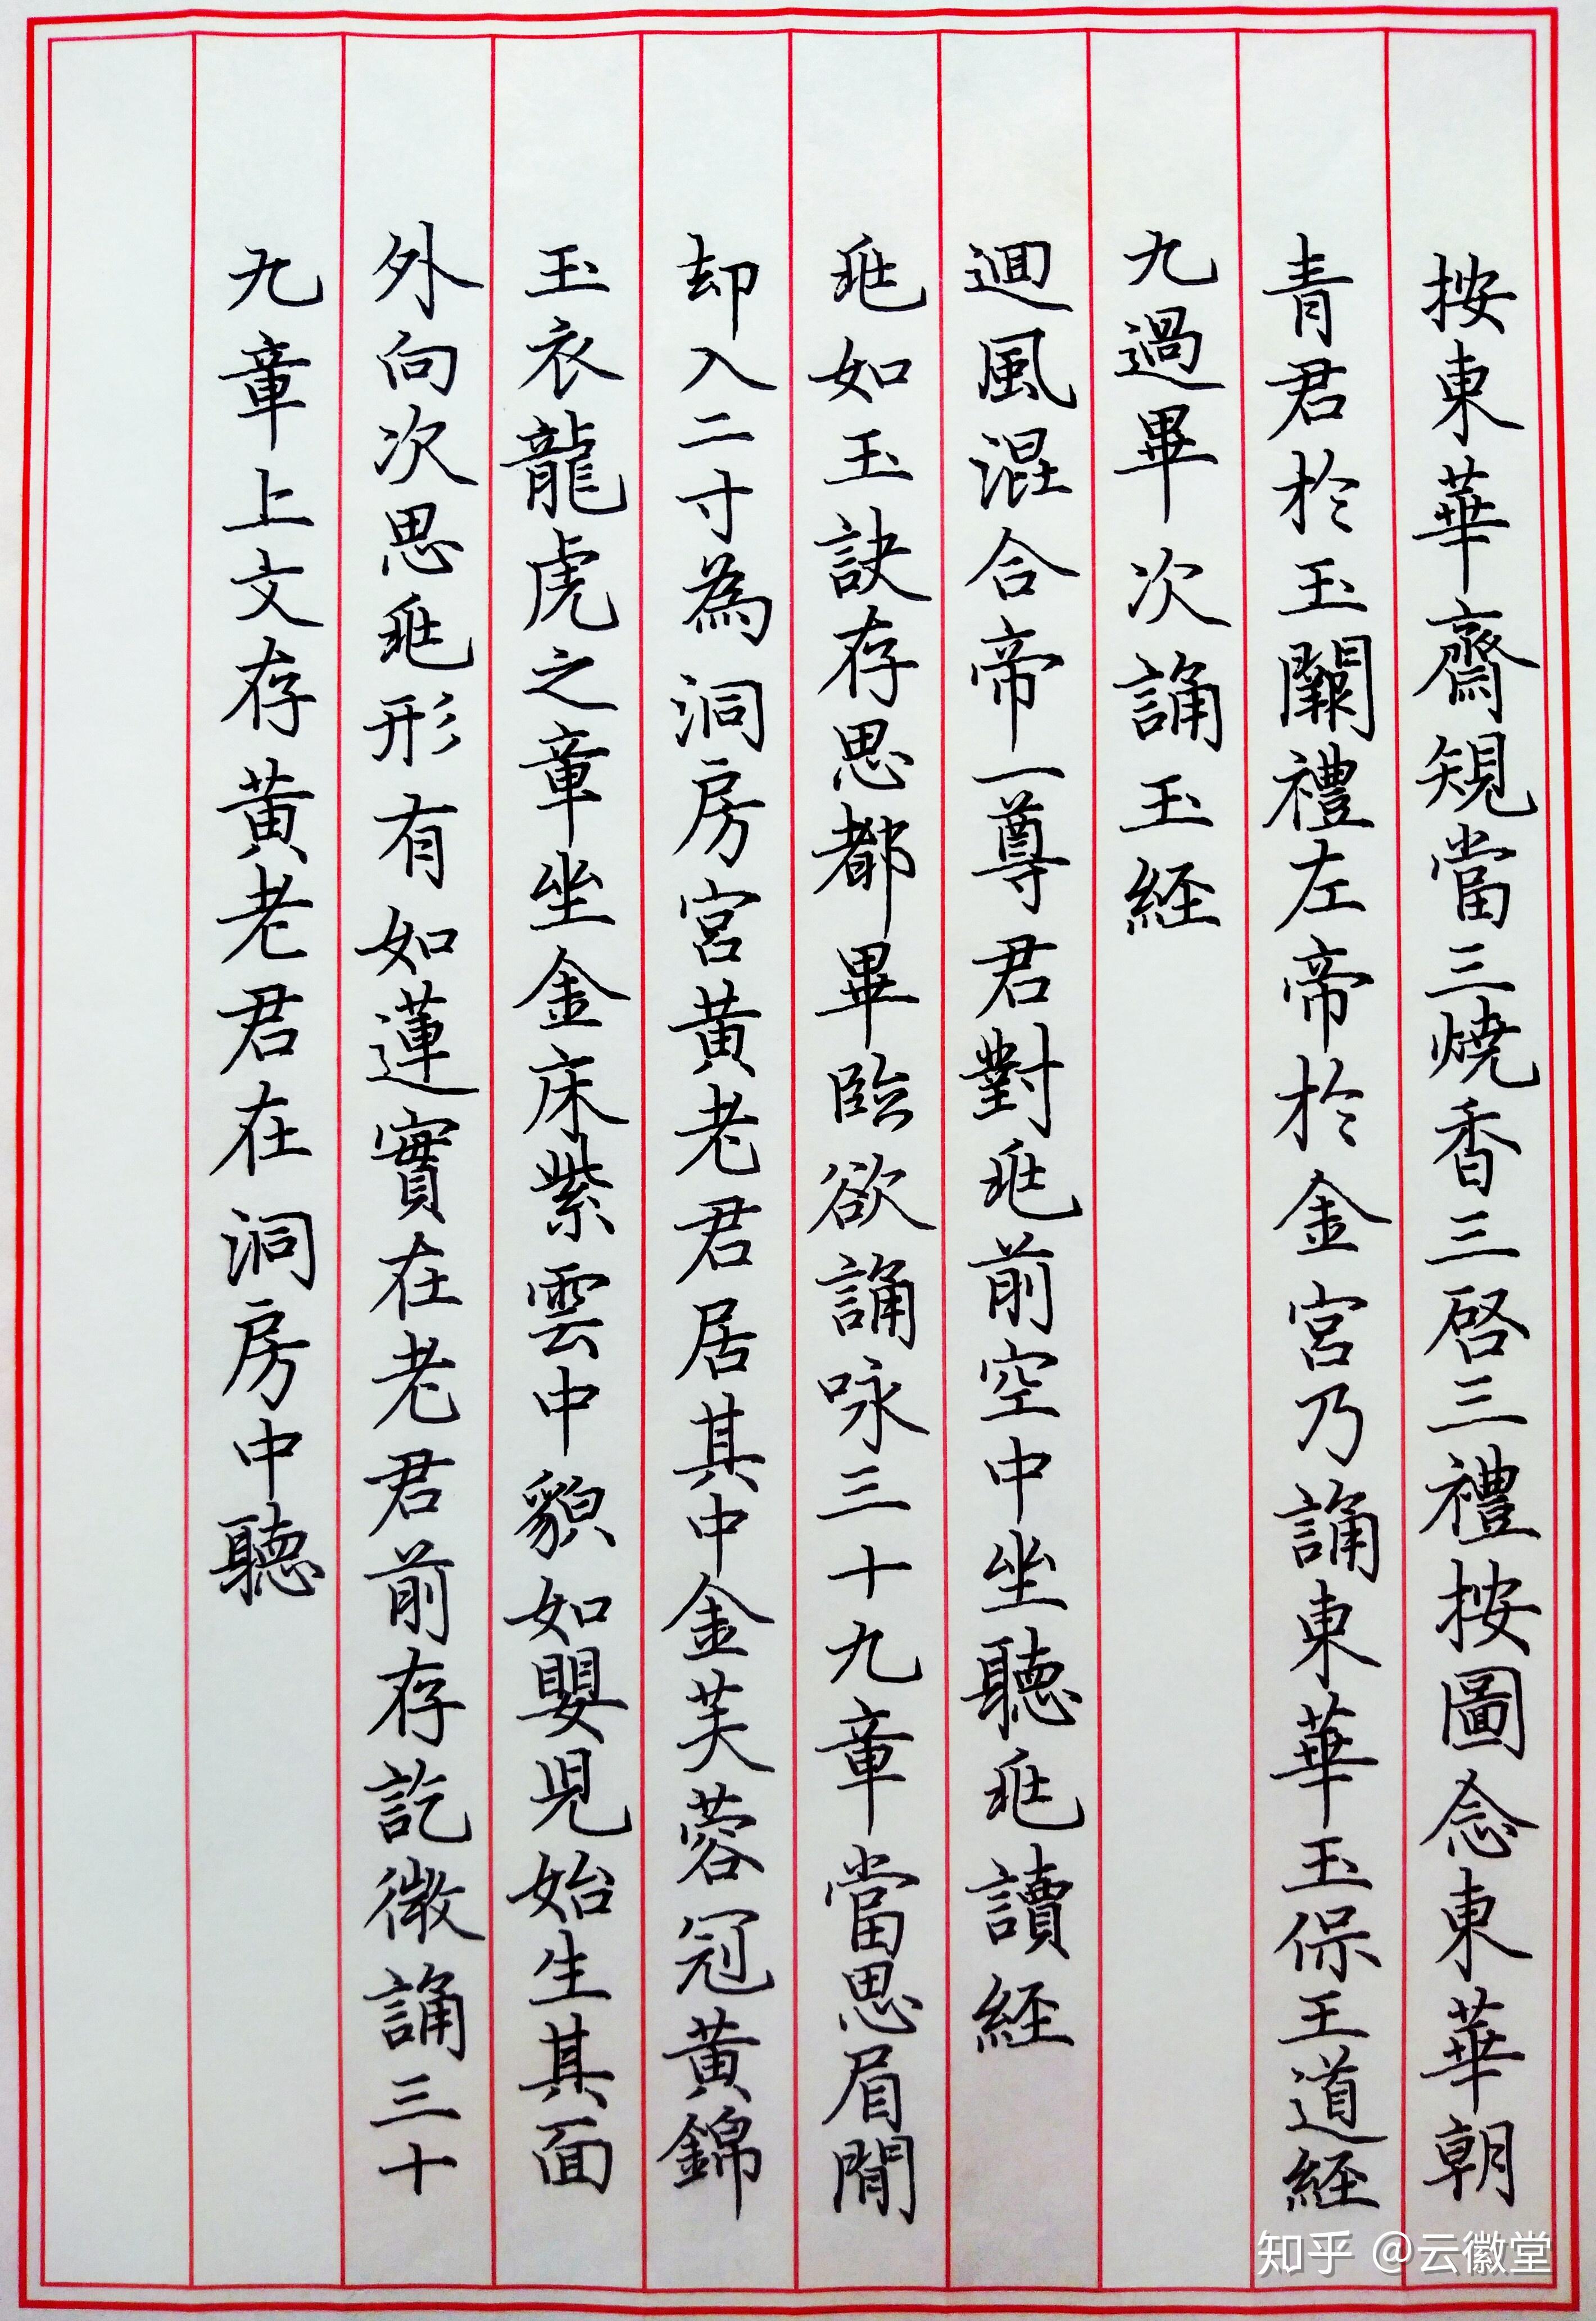 按東華齋規當三燒香三啓三禮按圖念東華朝
青君於玉闕禮左帝於金宮乃誦東華玉保王道経
九過畢次誦玉経
迴風混合帝一尊君對兆前空中坐聽兆讀経
兆如玉訣存思都畢臨欲誦咏三十九章當思眉間
却入二寸為洞房宮黃老君居其中金芙蓉冠黃錦
玉衣龍虎之章坐金床紫雲中貌如嬰児始生其面
外向次思兆形有如蓮實在老君前存訖微誦三十
九章上文存黃老君在洞房中聽
知乎 @云徽堂